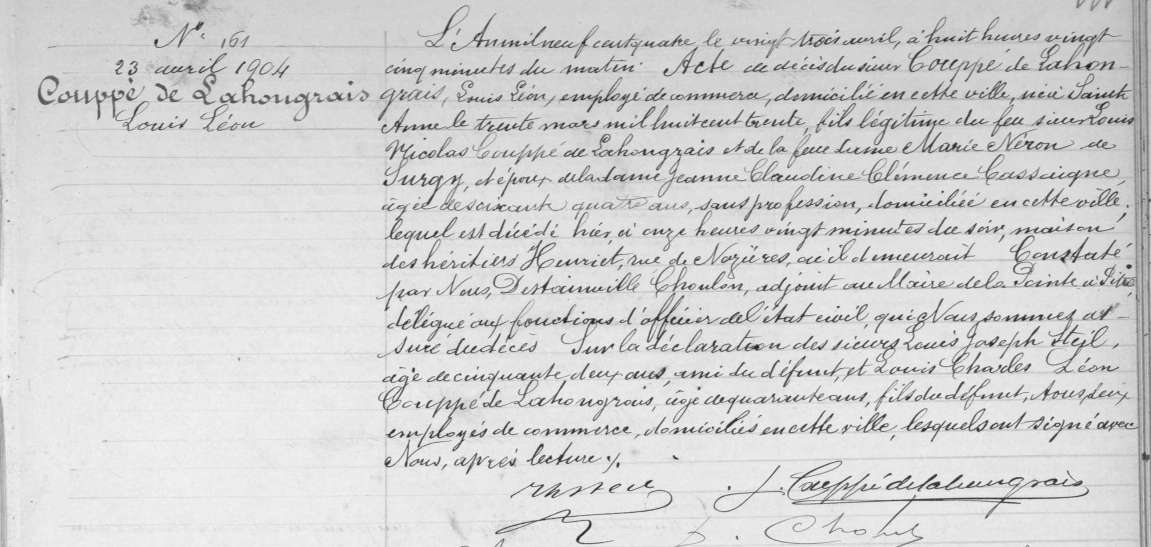 N° 161
23 avril 1904
Couppé de Lahongrais
Louis Léon
L'An mil neuf cent quatre, le vingt trois avril, à huit heures vingt
cinq minutes du matin. Acte de décès du sieur Couppé de Lahon-
grais, Louis Léon, employé de commerce, domicilié en cette ville, né à Sainte
Anne le trente mars mil huit cent trente, fils légitime du feu sieur Louis
Nicolas Couppé de Lahongrais et de la feue dame Marie Néron de
Surgy, et époux de la dame Jeanne Claudine Clémence Cassaigne,
âgée de soixante quatre ans, sans profession, domiciliée en cette ville;
lequel est décédé hier, à onze heures vingt minutes du soir, maison
des héritiers Henriet, rue de Nozières, où il demeurait. Constaté
par Nous, Destainville Choulon, adjoint au Maire de la Pointe à Pitre,
délégué aux fonctions d'officier de l'état civil, qui Nous sommes as-
suré du décès. Sur la déclaration des sieurs Louis Joseph Steil,
âgé de cinquante deux ans, ami du défunt, et Louis Charles Léon
Couppé de Lahongrais, âgé de quarante ans, fils du défunt, tous deux
employés de commerce, domiciliés en cette ville, lesquels ont signé avec
Nous, après lecture ./.
L. Couppé de Lahongrais